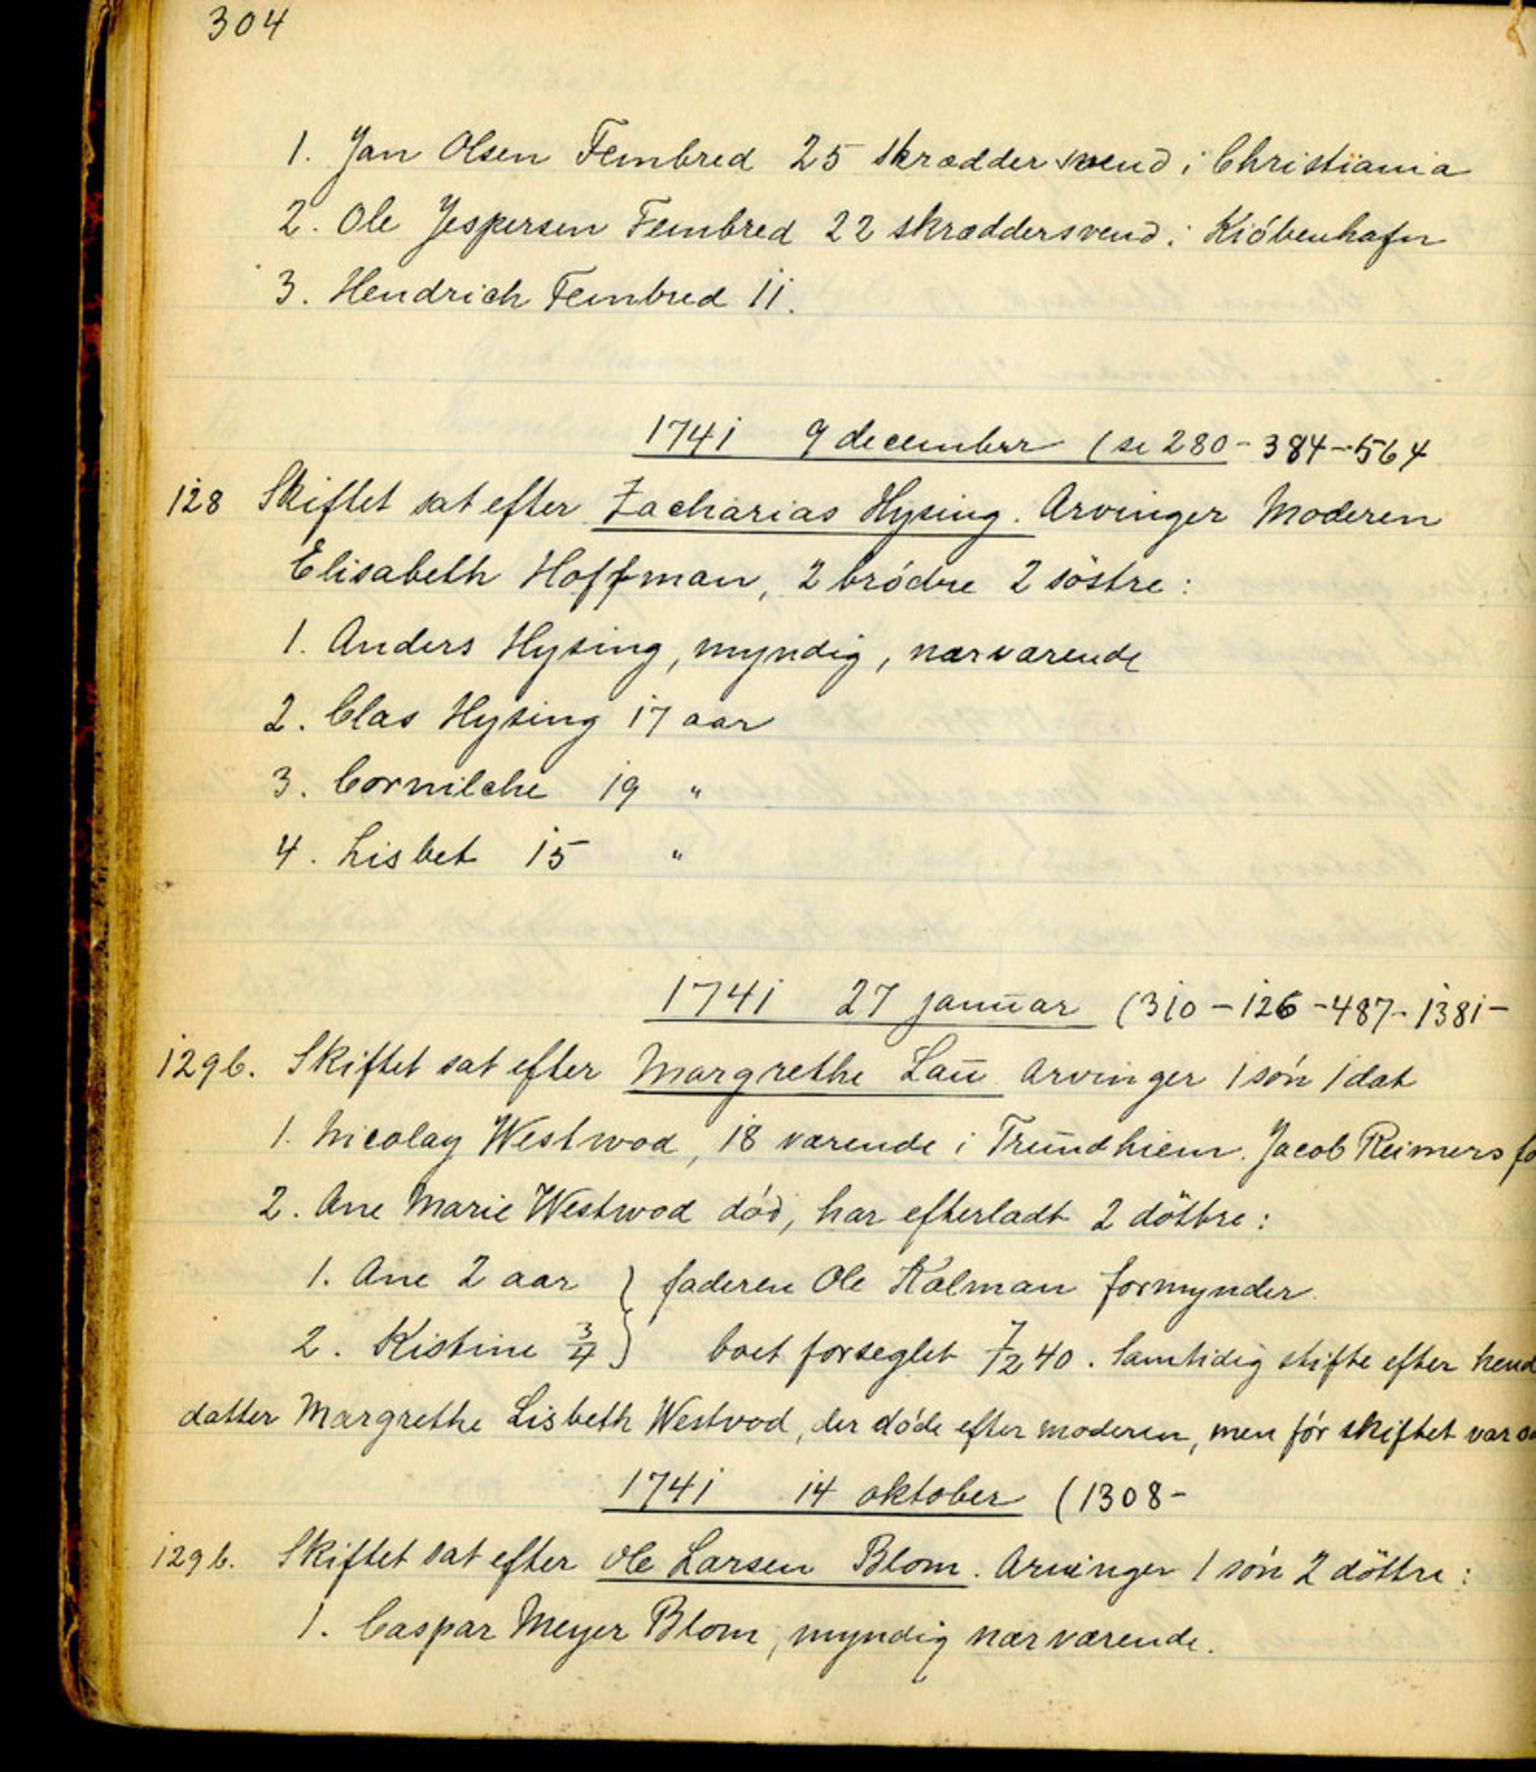 304
1. Jan Olsen Fembred 25 skræddersvend i Christiania
2. Ole Jespersen Fembred 22 skræddersvend i Kiöbenhafn
3. Hendrich Fembred 11.
1741 9 december (se 280-384-564
128 Skiftet sat efter Zacharias Hysing. Arvinger Moderen
Elisabeth Hoffman, 2 brödre 2 söstre:
1. Anders Hysing, myndig, nærværende
2. Clas Hysing 17 aar
3. Cornilche 19 "
4. Lisbet 15 "
1741 27 januar (310-126-487-1381-
129b. Skiftet sat efter Margrethe Lau arvinger 1 sön 1 dat
1. Nicolay Westwod, 18 værende i Trundhiem. Jacob Reimers fo
2. Ane Marie Westwod död, har efterladt 2 döttre:
1. Ane 2 aar } faderen Ole Kálman formynder.
2. Kistine 3/4 } boet forseglet 7/12 40. Samtidig skifte efter hend
datter Margrethe Lisbeth Westvod, der döde efter moderen, men för skiftet var
1741 14 oktober (1308-
129b. Skiftet sat efter Ole Larsen Blom. Arvinger 1 sön 2 döttre:
1. Caspar Meyer Blom, myndig nærværende.